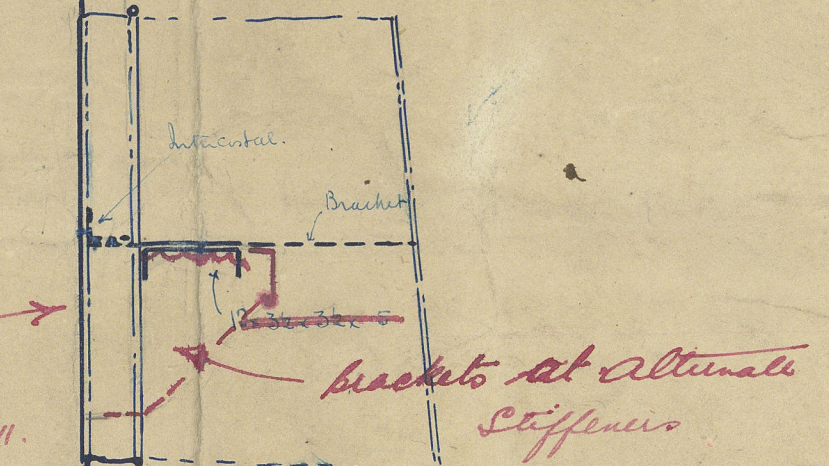 Intercostal.
Bracket
12 x 3½ x 3½ x 5
brackets at alternate
Stiffeners